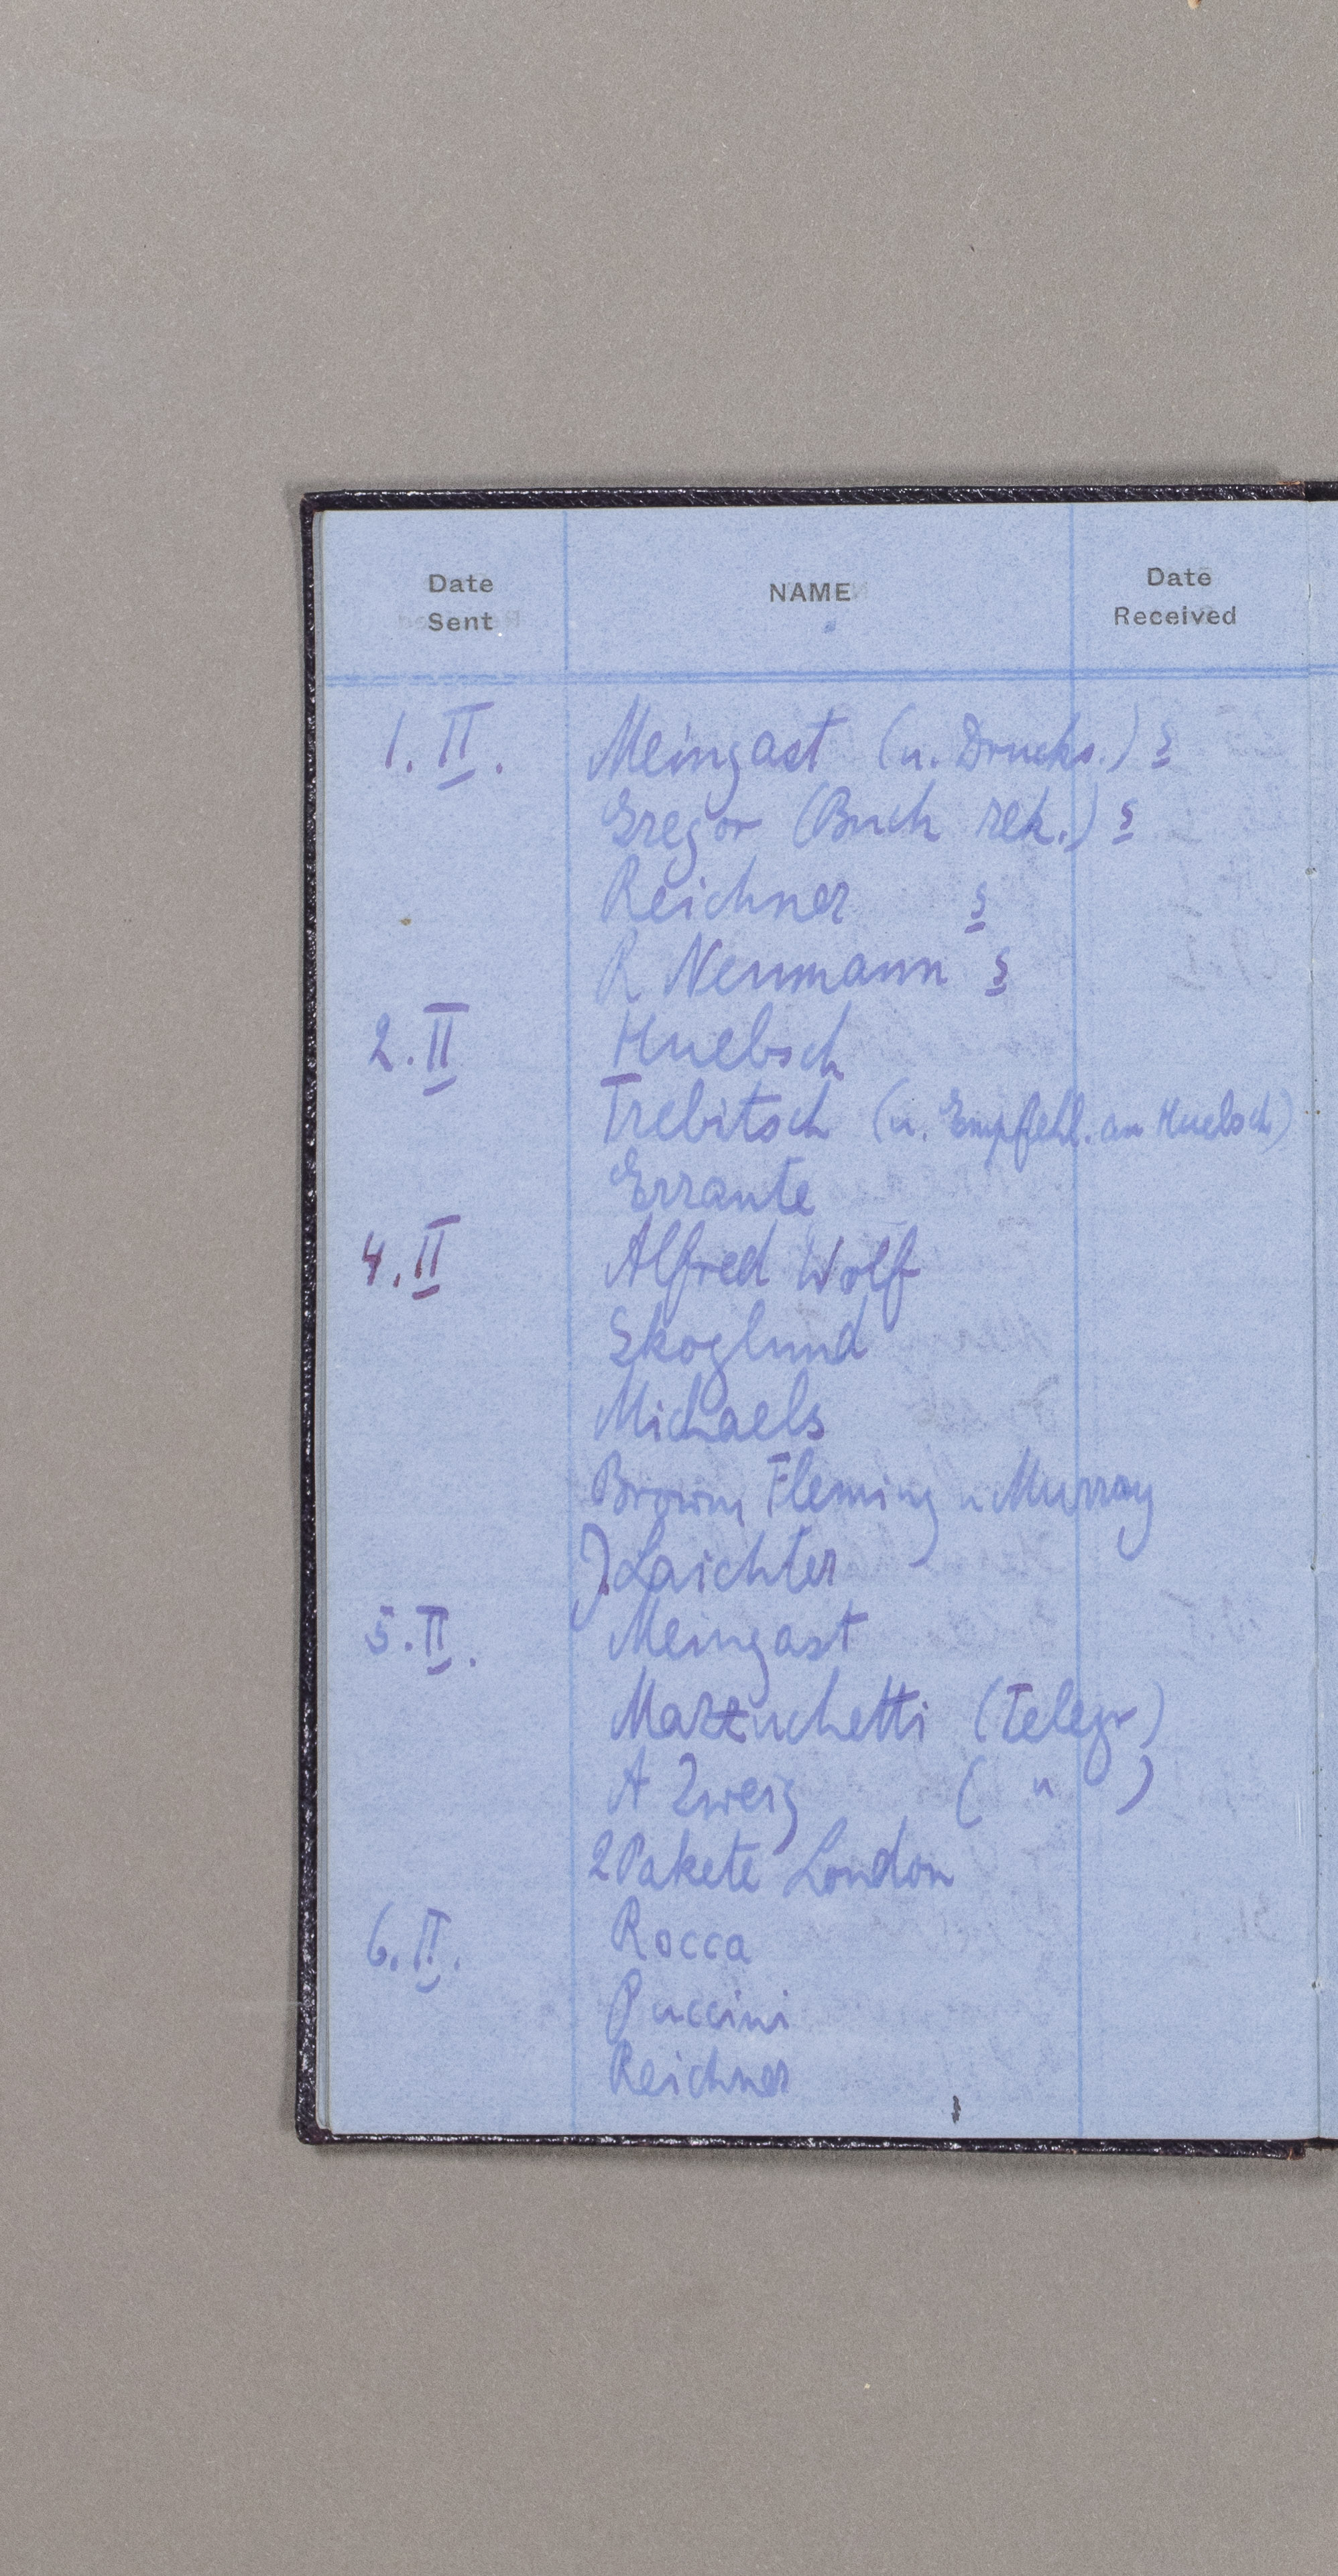 Date Sent NAME Date Received
1. II. Meingast (u. Drucks.) §
Gregor (Buch rek.) §
Reichner §
R Neumann §
2. II Huebsch
Trebitsch (u. Empfehl. an Huebsch)
Errante
4. II Alfred Wolf
Skoglund
Michaels
Brown, Fleming u Murray
J. Laichter
5. II. Meingast
Mazzuchetti (Telegr)
A Zweig ( " )
2 Pakete London
6. II. Rocca
Puccini
Reichner